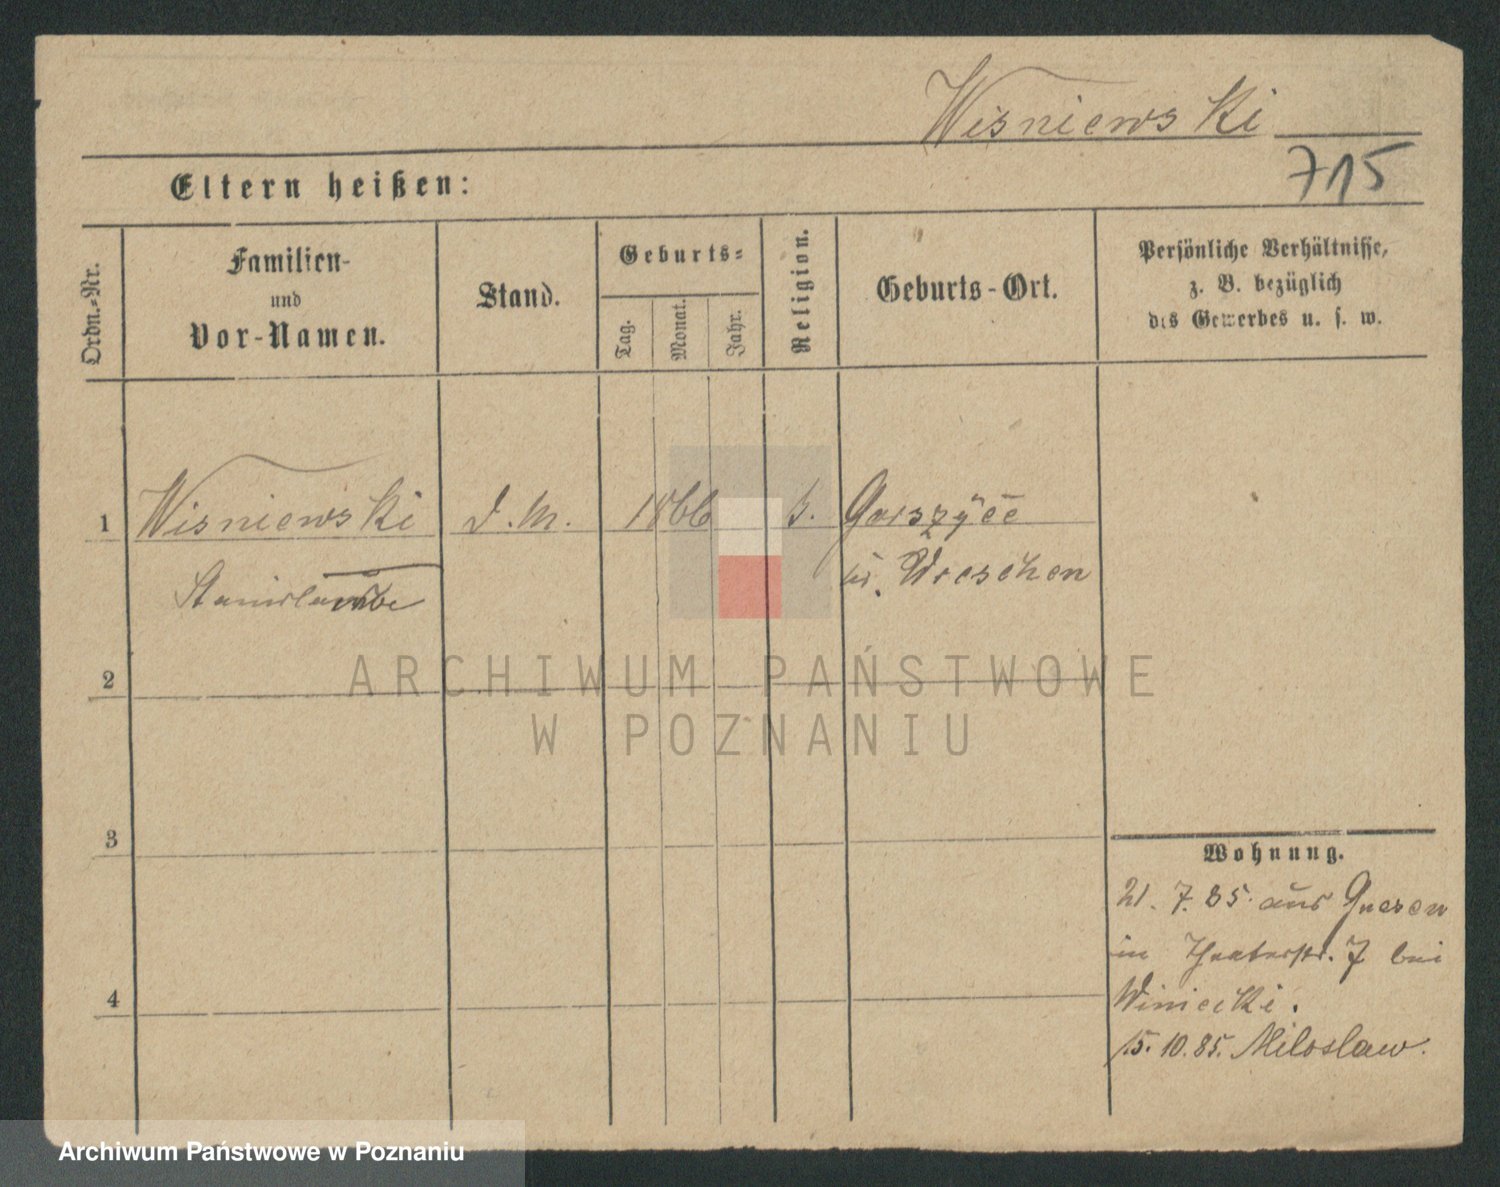 Wiśniewski
715
Eltern heißen:
Ordn.=Nr.
Familien-
und
Vor-Namen.
Stand.
Geburts=
Tag.
Monat.
Jahr.
Religion.
Geburts-Ort.
Persönliche Verhältnisse,
z. B. bezüglich
des Gewerbes u. s. w.
1
Wisniewski
D. M.
1866
k.
Stanislawa
Kr. Wreschen
2
ARCHIWUM PAŃSTWOWE
W POZNANIU
3
4
Wohnung.
21. 7. 85. aus Gnesen
in Theaterstr. 7 bei
Winiecki.
15. 10. 85. Miloslaw.
Archiwum Państwowe w Poznaniu